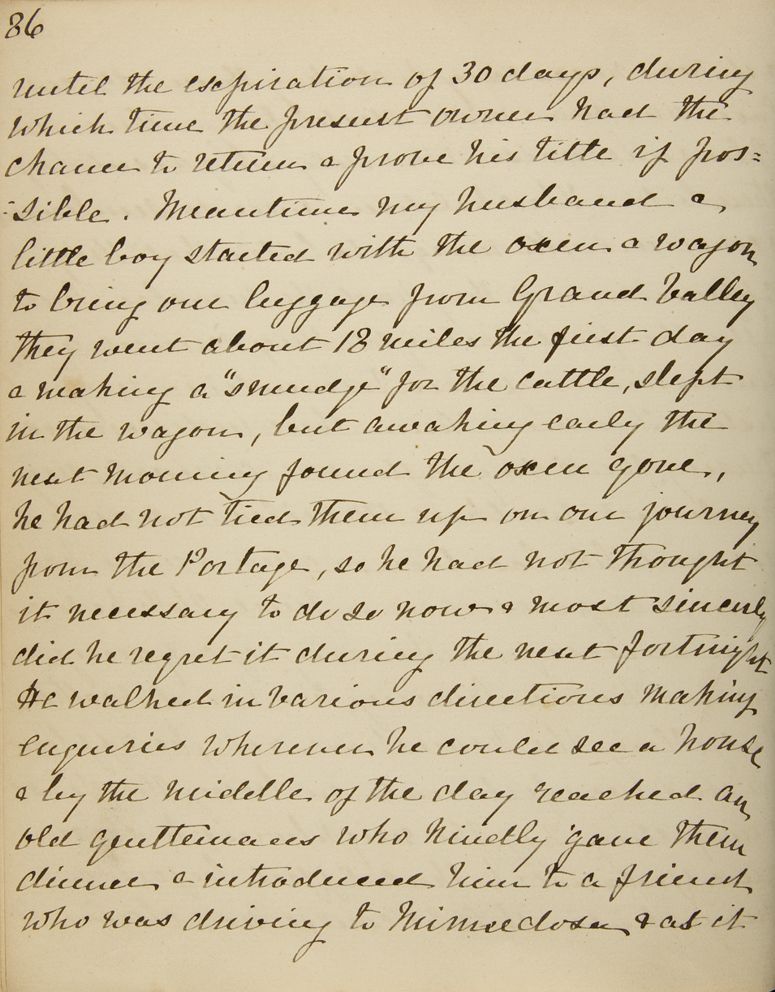 86
until the expiration of 30 days, during
which time the present owner had the
chance to return & prove his title if pos=
=sible. Meantime my husband &
little boy started with the oxen & wagon
to bring our luggage from Grand Valley
they went about 18 miles the first day
& making a "smudge" for the cattle, slept
in the wagon, but awaking early the
next morning found the oxen gone,
he had not tied them up on our journey
from the Portage, so he had not thought
it necessary to do so now & most sincerely
did he regret it during the next fortnight
He walked in various directions making
enquiries wherever he could see a house
& by the middle of the day reached an
old gentlemans who kindly gave them
dinner & introduced him to a friend
who was driving to Minnedosa & as it